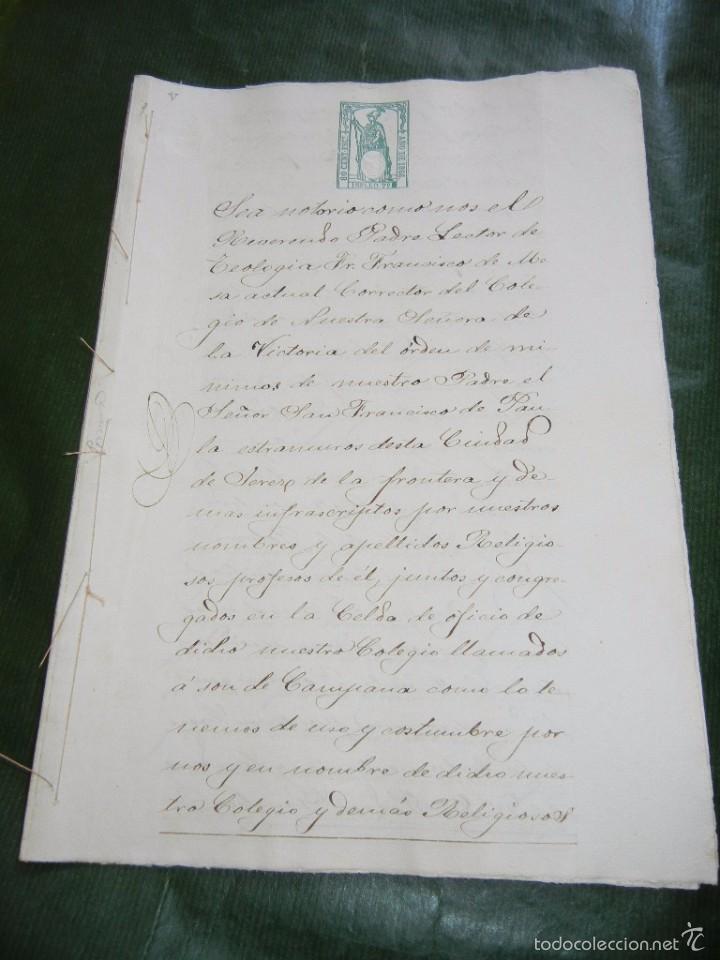 80 CENT. ESC.
AÑO DE 1866
Sea notorio como nos el
Reverendo Padre Lector de
Teologia Fr. Francisco de Me-
sa actual Corrector del Cole-
gio de Nuestra Señora de
la Victoria del órden de mi
nimos de nuestro Padre el
Señor San Francisco de Pau-
la estramuros desta Ciudad
de Jerez de la frontera y de-
mas infrascriptos por nuestros
nombres y apellidos Religio-
sos profesos de él, juntos y congre-
gados en la Celda de oficio de
dicho nuestro Colegio llamados
á son de Campana como lo te
nemos de uso y costumbre por
nos y en nombre de dicho nues-
tro Colegio y demás Religiosos
todocoleccion.net